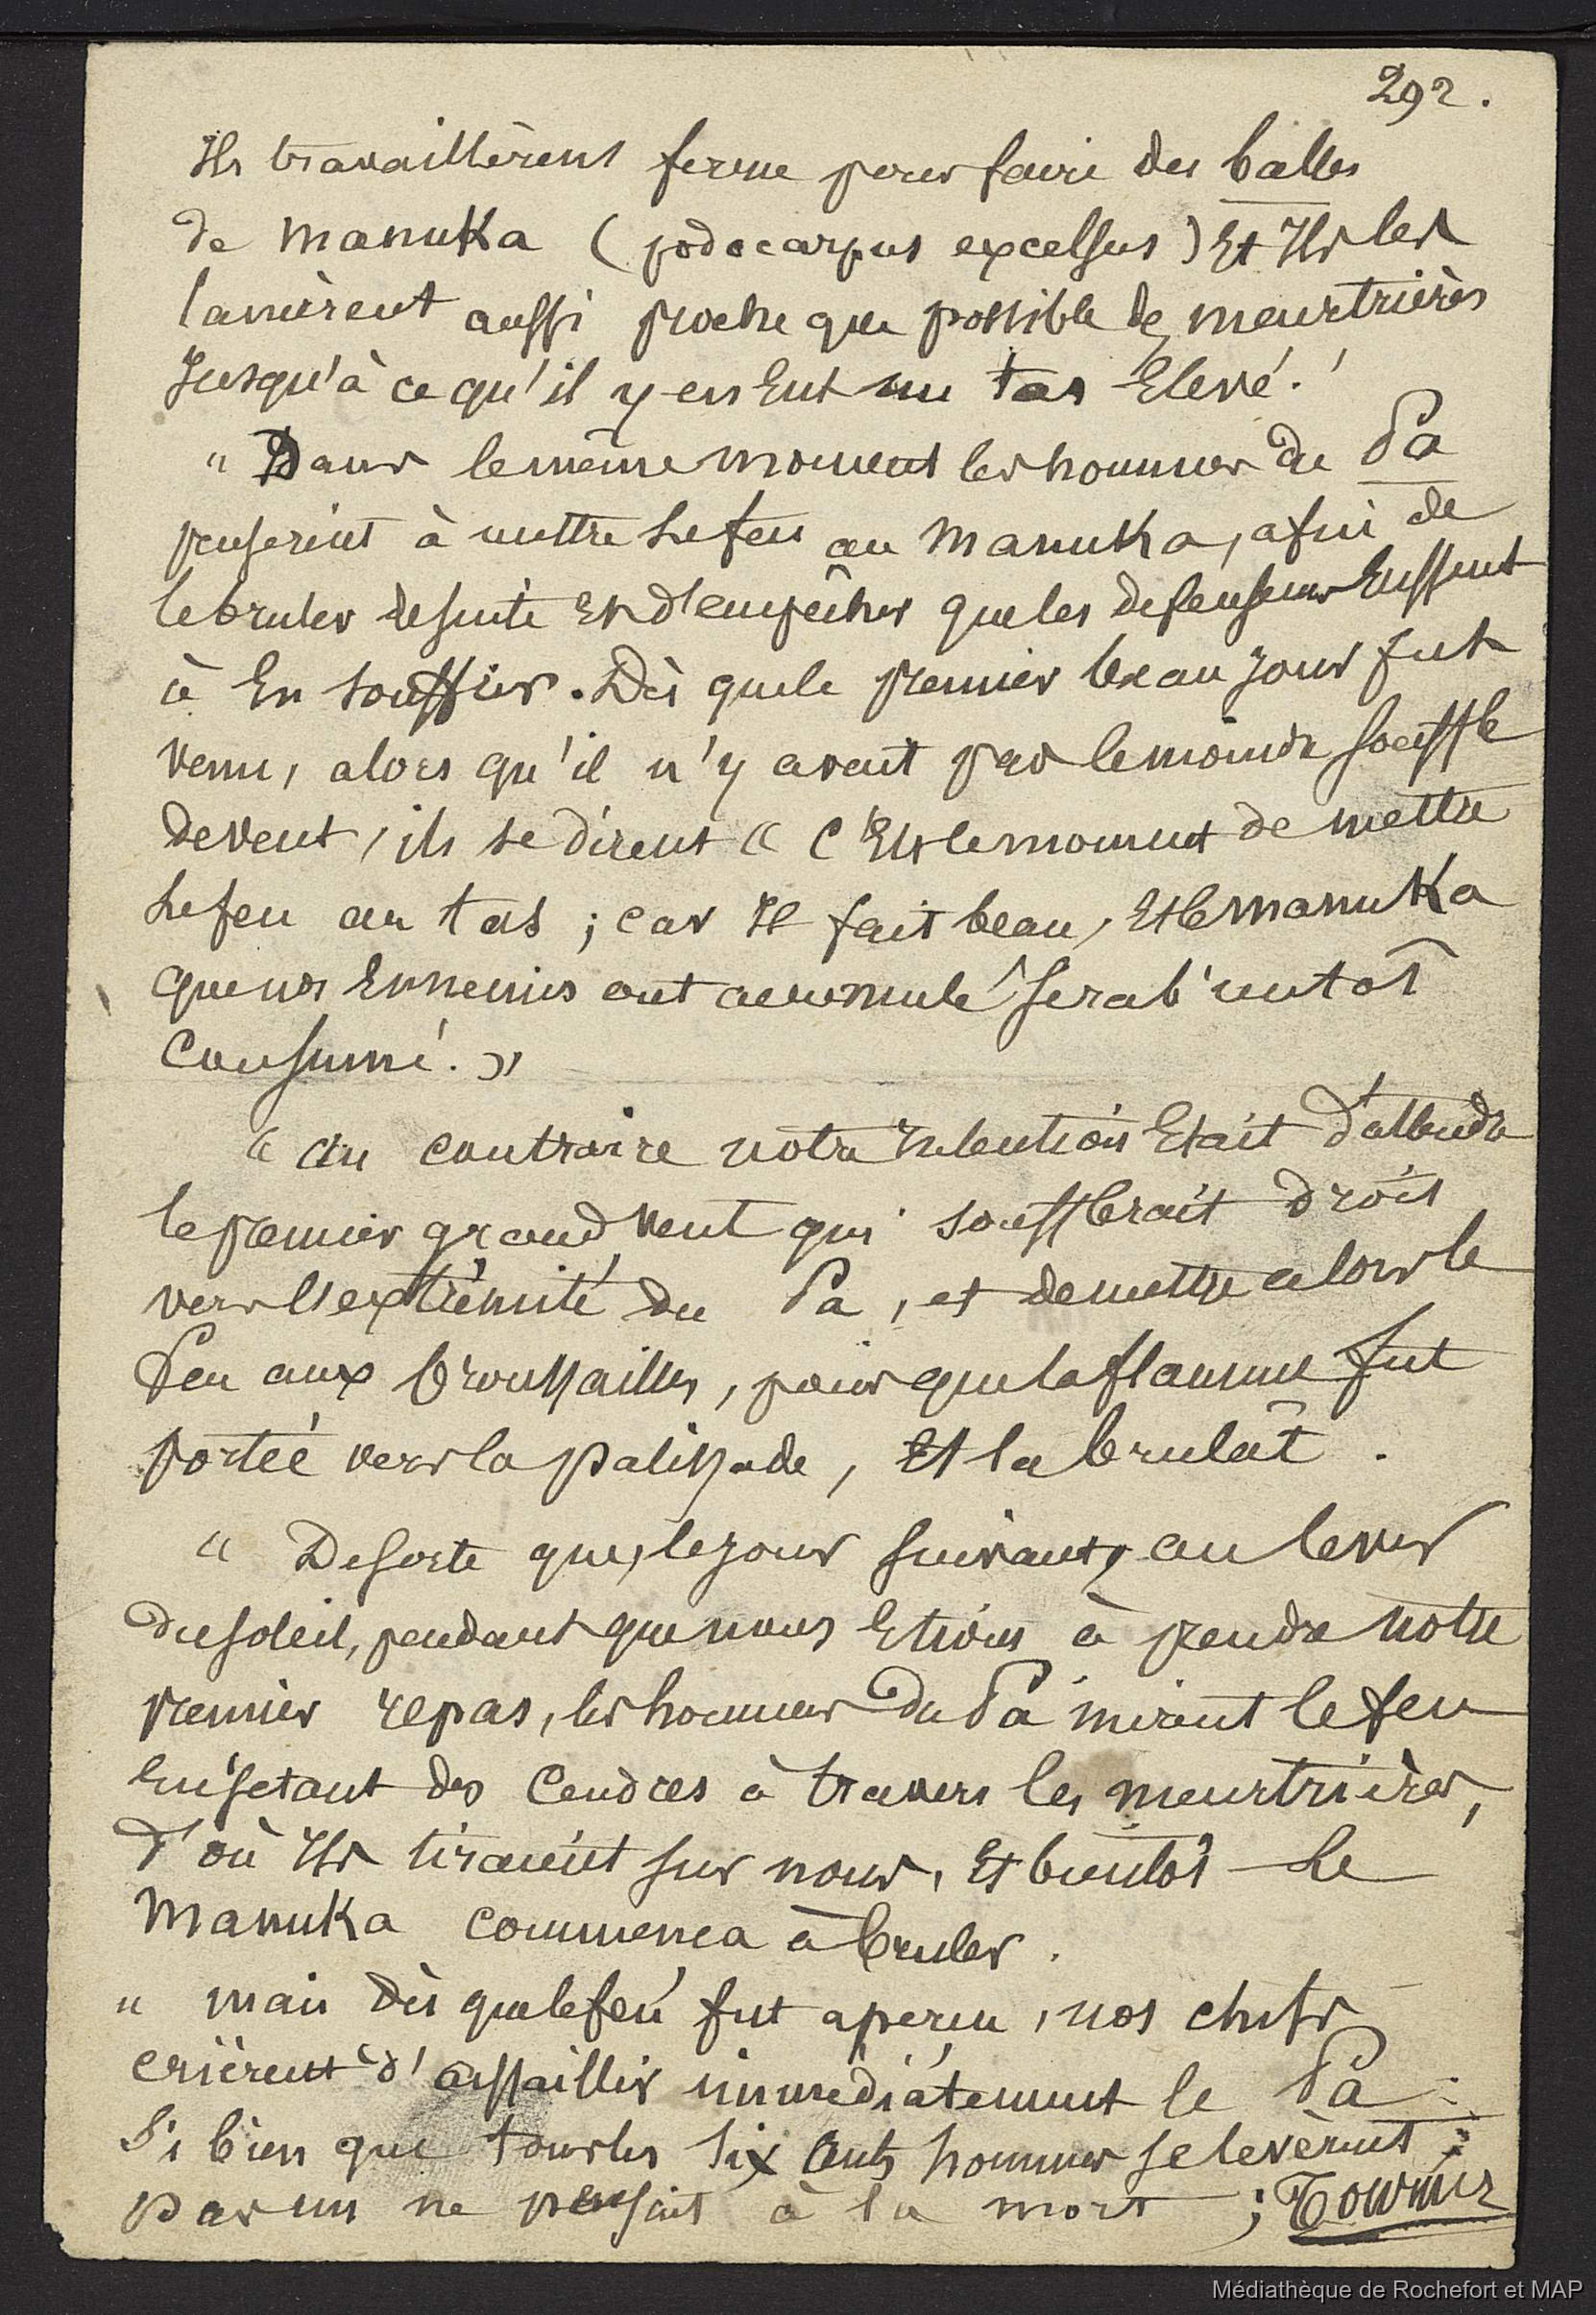 292.
Ils travaillèrent ferme pour faire des balles
de manuka (podocarpus excelsus) Et Ils les
lancèrent aussi proche que possible des meurtrières
Jusqu'à ce qu'il y en Eut un tas Elevé.
" Dans le même moment les hommes du Pa
penserent à mettre le feu au manuka, afin de
le bruler de suite Et d'empêcher que les defenseurs Eussent
à En souffrir. Dès que le premier beau jour fut
venu, alors qu'il n'y avait pas le moindre souffle
de vent, ils se dirent « C'Est le moment de mettre
le feu au tas ; car Il fait beau, Et le manuka
que nos Ennemis ont accumulé sera b'entot
consumé. »
" au contraire notre Intention Etait d'attendre
le premier grand vent qui soufflerait droit
vers l'extrémité du Pa, et de mettre alors le
feu aux broussailles, pour que la flamme fut
portée vers la palissade, Et la brulât.
" De sorte que, le jour suivant, au lever
du soleil, pendant que nous Etions à prendre notre
premier repas, les hommes du Pa mirent le feu
En jetant des Cendres à travers les meurtrières,
d'où Ils tiraient sur nous, Et bientôt le
manuka commenca à bruler.
" mais dès que le feu fut aperçu, nos chefs
crièrent d'assaillir immédiatement le Pa
Si bien que tous les six Cents hommes se levèrent ;
pas un ne pensait à la mort ; Tournez
Médiathèque de Rochefort et MAP